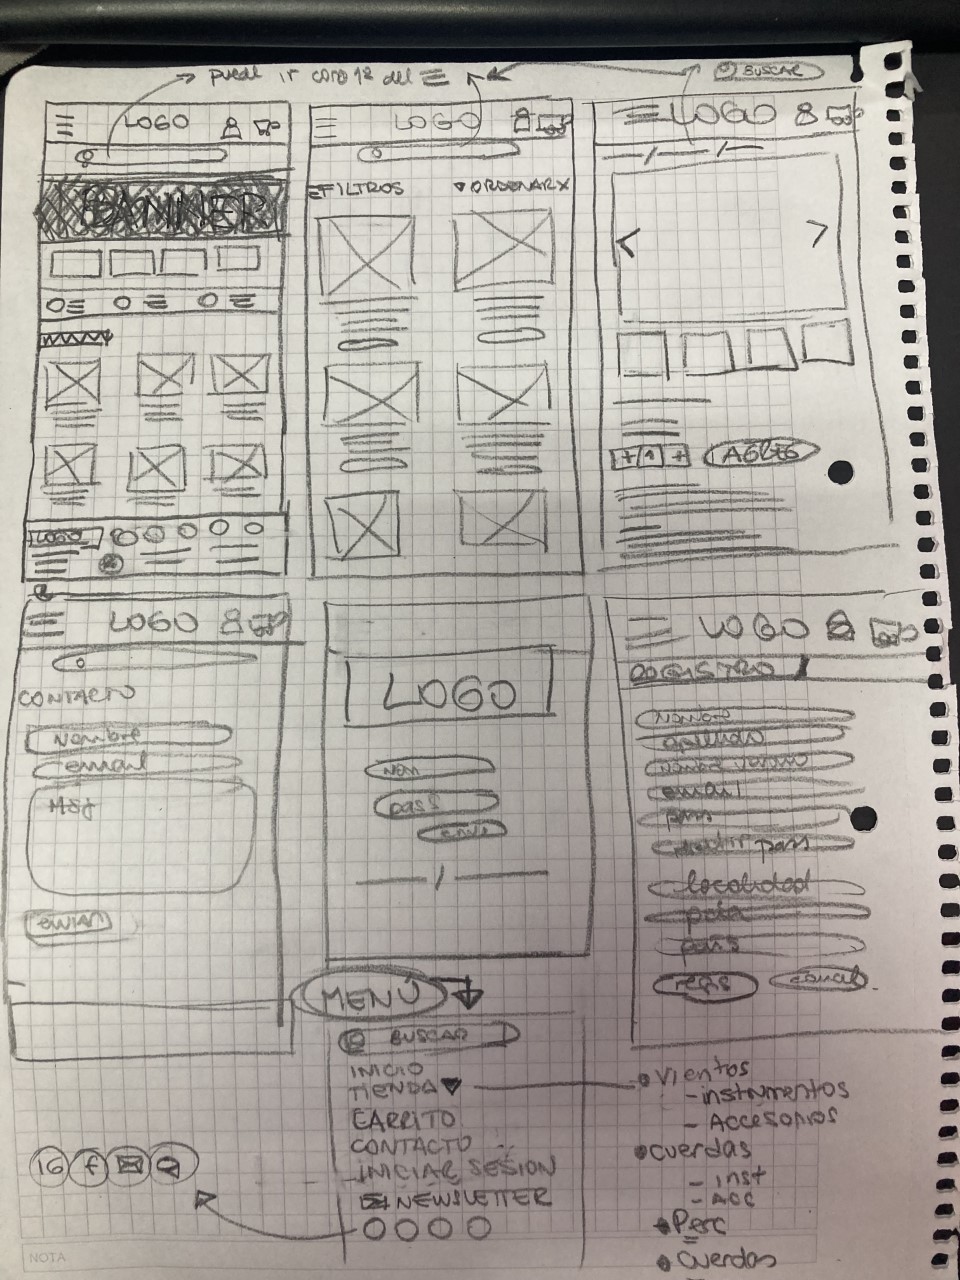 puede ir como 1º del
BUSCAR
LOGO
BANNER
LOGO
LOGO
FILTROS ORDENARX
LOGO
< >
+ 1 +
AGREG
LOGO
CONTACTO
Nombre
email
Msj
ENVIAR
LOGO
pass
LOGO
REGISTRO
Nombre
apellido
email
pass
pass
localidad
país
regis cancel
MENÚ
BUSCAR
INICIO
TIENDA
CARRITO
CONTACTO
INICIAR SESIÓN
NEWSLETTER
IG f
Vientos
- instrumentos
- Accesorios
cuerdas
- inst
- Acc
Perc
cuerdas
NOTA